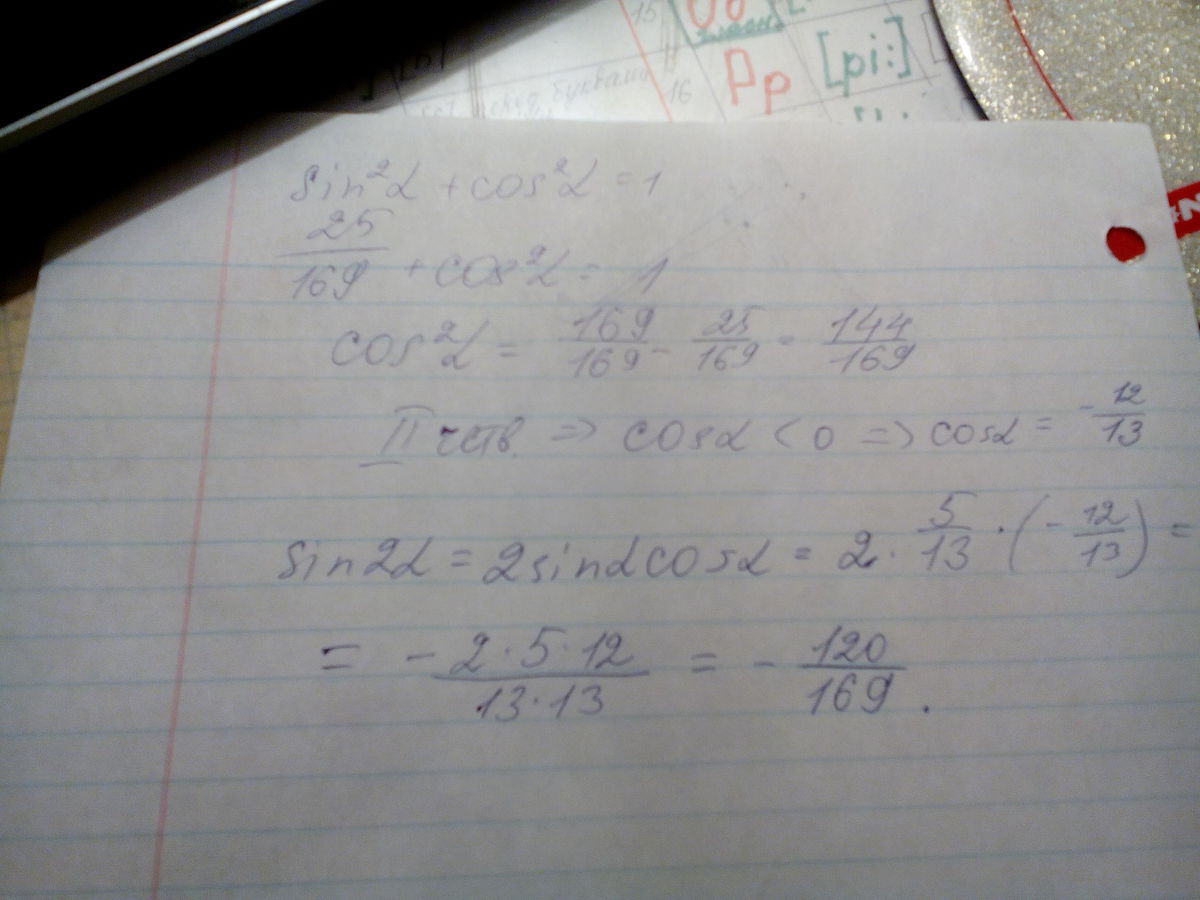 15
буквами
16
Pp
[pi:]
sin²α + cos²α = 1
25/169 + cos²α = 1
cos²α = 169/169 - 25/169 = 144/169
II четв. => cosα < 0 => cosα = -12/13
sin2α = 2sinαcosα = 2 · 5/13 · (-12/13) =
= - 2·5·12/13·13 = - 120/169.